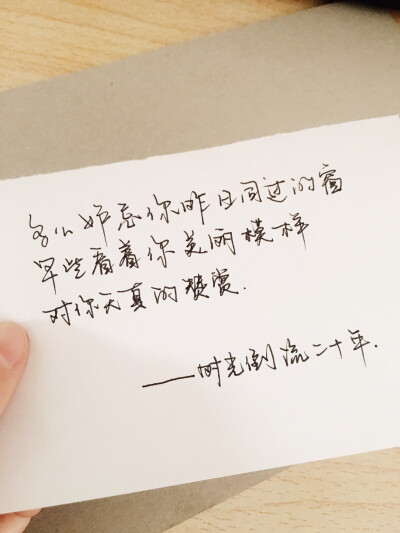 多么妒忌你昨日同过的窗
早些看着你美丽模样
对你天真的赞赏.
——时光倒流二十年.